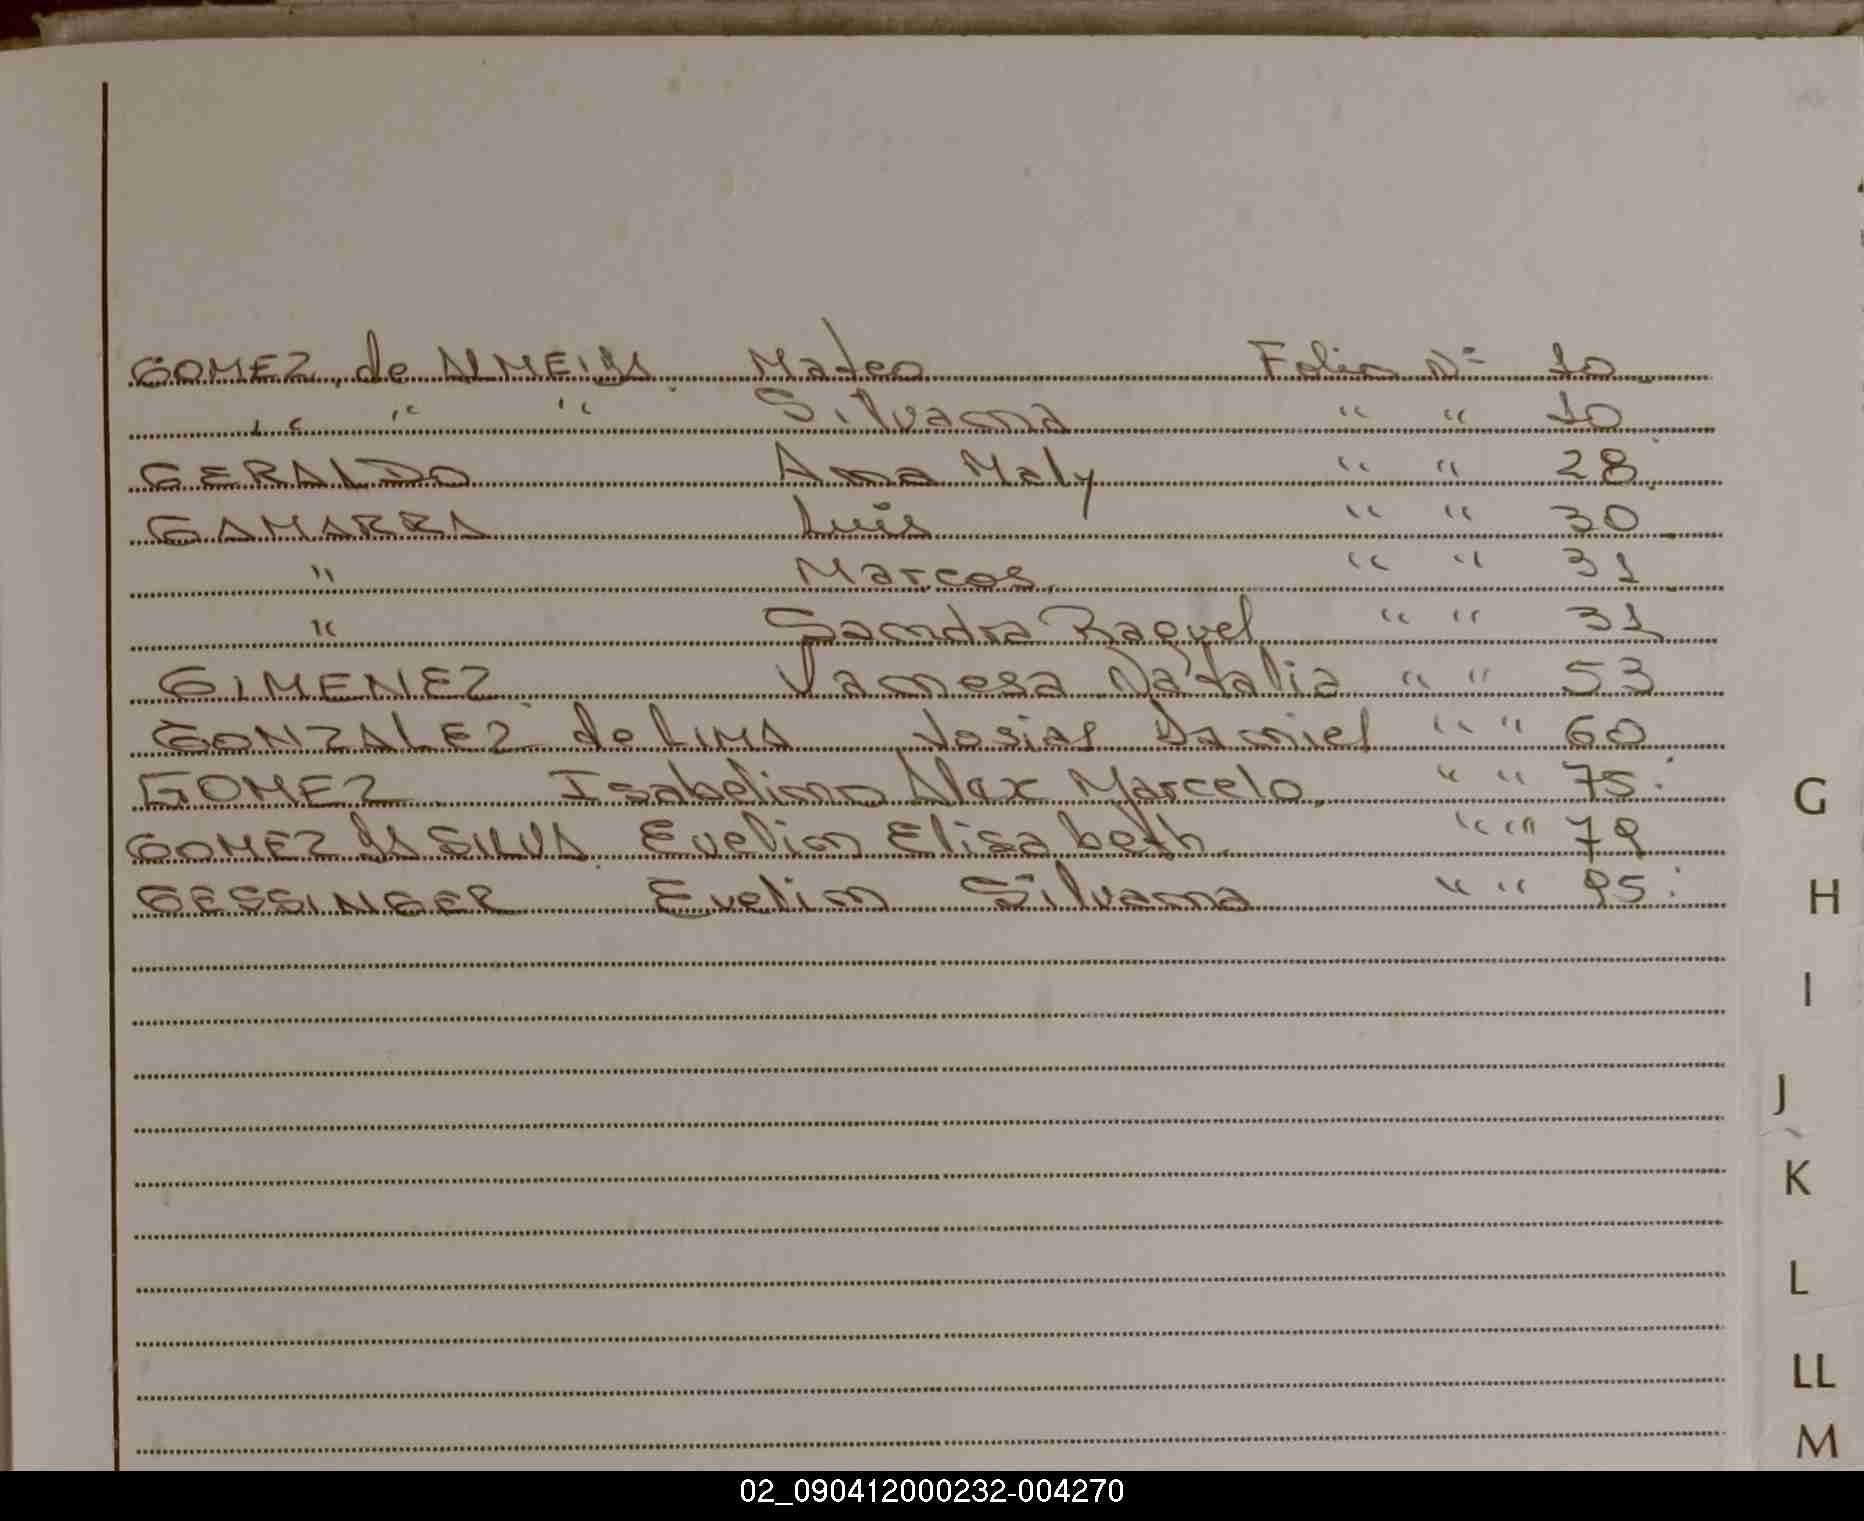 GOMEZ, de ALMEIDA. Mateo Folio Nº 10
" " " Silvana " " 10
GERALDO Ana Maly " " 28
GAMARRA Luis " " 30
" Marcos. " " 31
" Sandra Raquel " " 31
GIMENEZ Vanesa Natalia " " 53
GONZALEZ de LIMA Josias Daniel " " 60
GOMEZ Isabelino Alex Marcelo. " " 75.
GOMEZ DA SILVA. Evelin Elisabeth. " " 79
GESSINGER Evelin Silvana " " 95.
G
H
I
J
K
L
LL
M
02_090412000232-004270